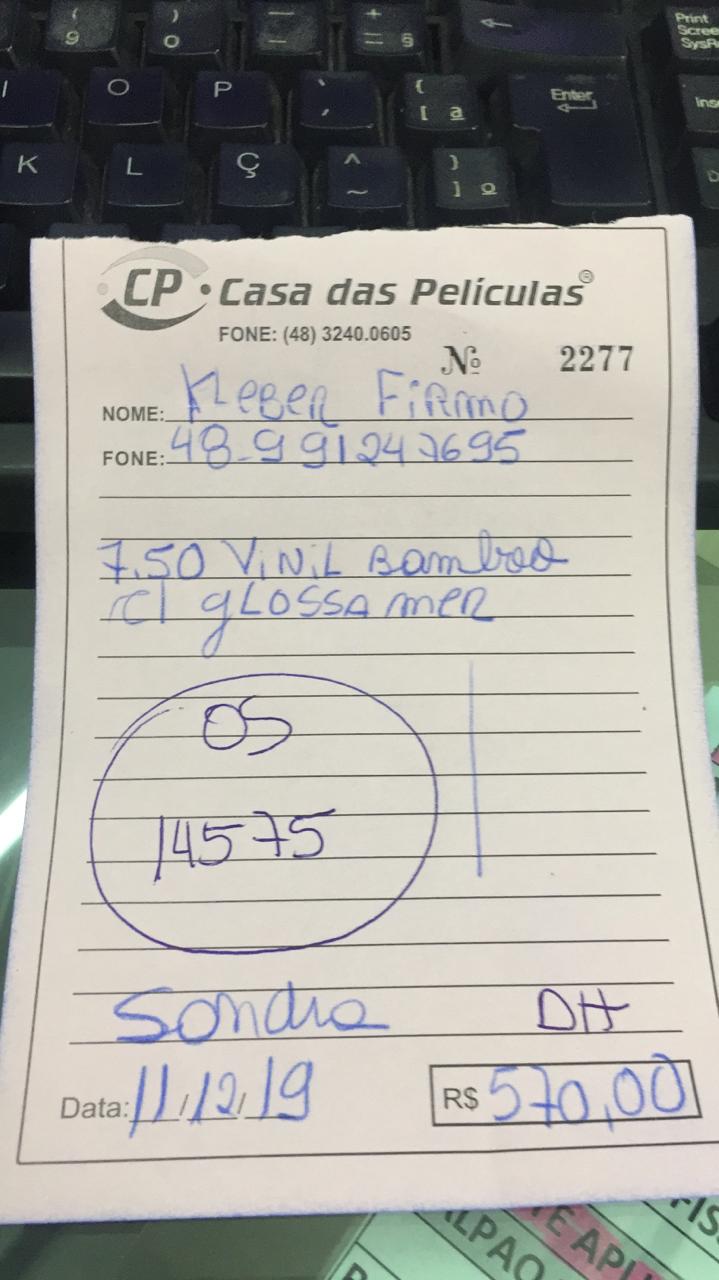 ( 9
) 0
_ -
+ = §
Print Scree SysR
I
O
P
` ´
{ [ ª
Enter
Ins
K
L
Ç
^ ~
} ] º
D
CP • Casa das Películas ®
FONE: (48) 3240.0605
Nº 2277
NOME: Kleber Firmo
FONE: 48-991247695
7.50 Vinil Bamboo
c/ glossamer
OS
14575
Sandra DH
Data: 11/12/19 R$ 570,00
ALPAO
TE APLI
FIS